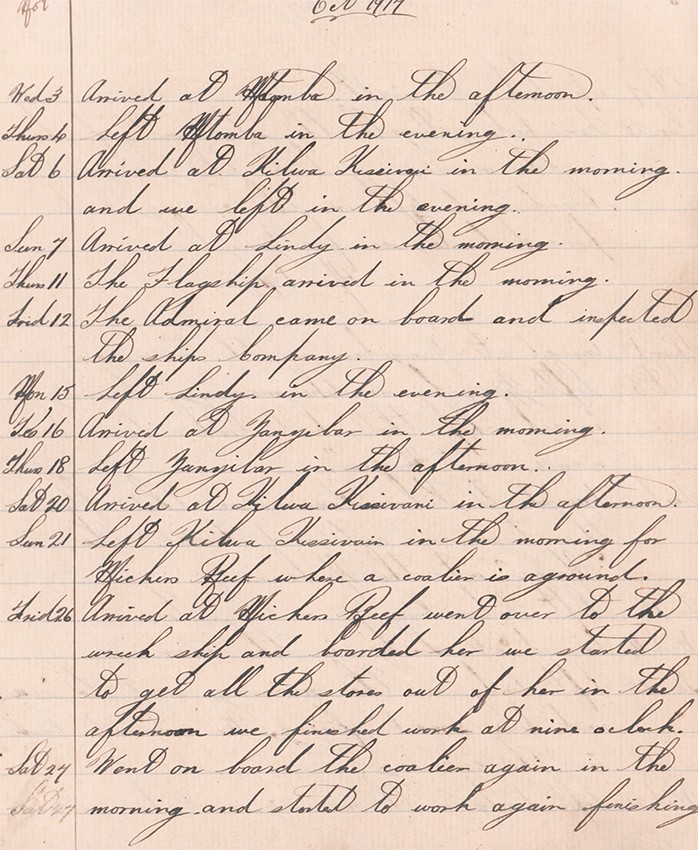 Oct 1917
Wed 3 Arrived at Mtomba in the afternoon.
Thurs 4 Left Mtomba in the evening.
Sat 6 Arrived at Kilwa Kissivani in the morning.
and we left in the evening.
Sun 7 Arrived at Lindy in the morning.
Thurs 11 The Flagship arrived in the morning.
Frid 12 The Admiral came on board and inspected
the ships Company.
Mon 15 Left Lindy in the evening.
Tes 16 Arrived at Zanzibar in the morning.
Thurs 18 Left Zanzibar in the afternoon.
Sat 20 Arrived at Kilwa Kissivani in the afternoon.
Sun 21 Left Kilwa Kissivain in the morning for
Wickers Reef where a coalier is aground.
Frid 26 Arrived at Wickers Reef went over to the
wreck ship and boarded her we started
to get all the stores out of her in the
afternoon we finished work at nine oclock.
Sat 27 Went on board the coalier again in the
morning and started to work again finishing